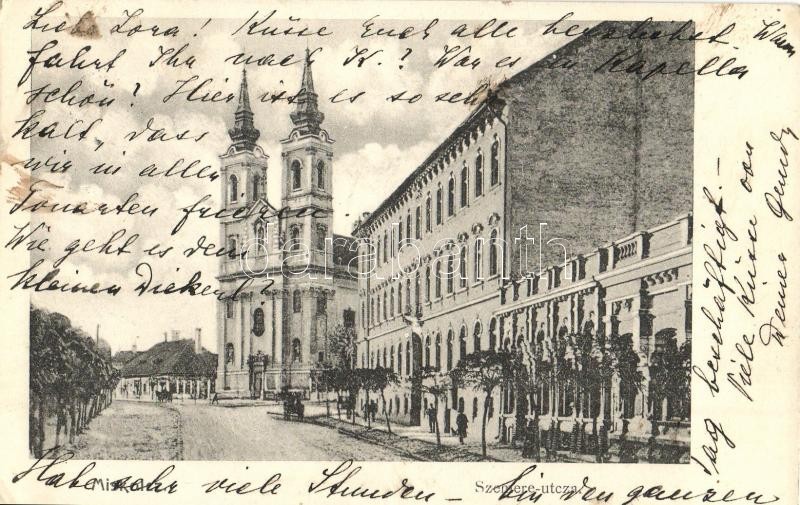 Liebe Dora! Küsse Euch alle herzlichst. Wann
fahrt Ihr nach K.? War es in Kapella
schön? Hier ist es so sehr
kalt, dass
wir in allen
Tonarten frieren.
Wie geht es dem
kleinen Dickerl?
darabanth
Miskolcz.
Szemere-utcza.
Habe sehr viele Stunden – bin den ganzen
Tag beschäftigt. –
Viele Küsse von
Deiner